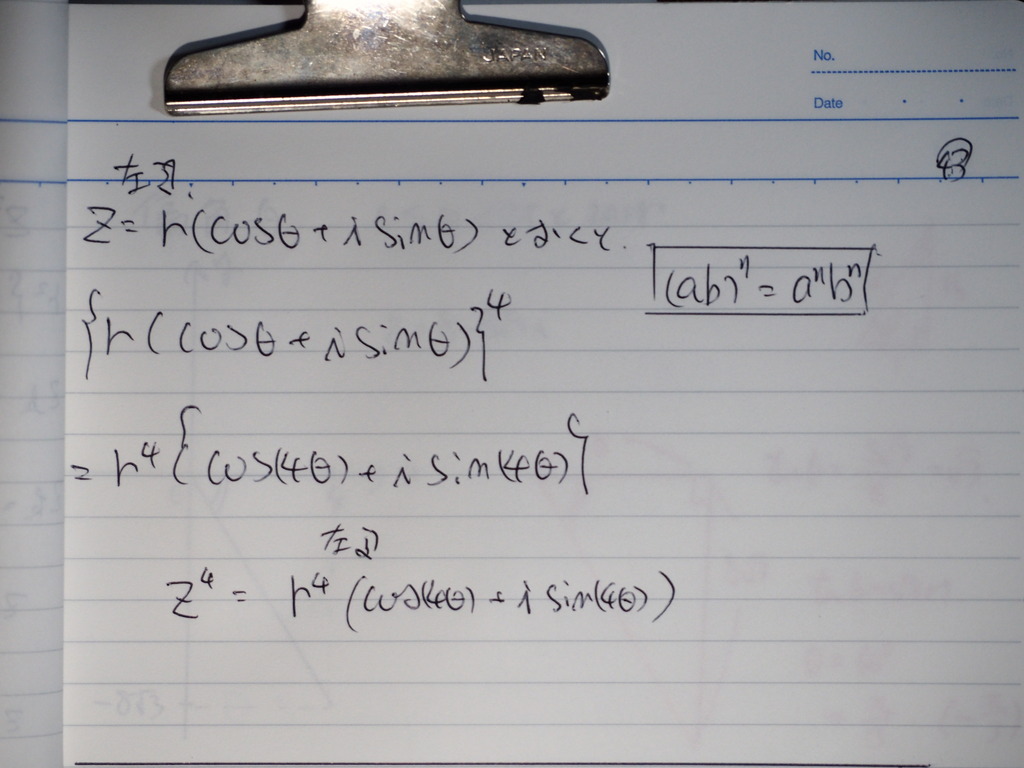 JAPAN
No.
Date
43
左辺.
z = r(cosθ + i sinθ) とおくと.
(ab)ⁿ = aⁿbⁿ
{r(cosθ + i sinθ)}⁴
= r⁴{cos(4θ) + i sin(4θ)}
左辺
z⁴ = r⁴(cos(4θ) + i sin(4θ))